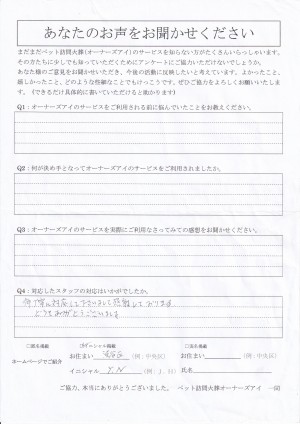 あなたのお声をお聞かせください
まだまだペット訪問火葬(オーナーズアイ)のサービスを知らない方がたくさんいらっしゃいます。
その方たちに少しでも知っていただくためにアンケートにご協力いただけないでしょうか。
あなた様のご意見をお聞かせいただき、今後の活動に反映したいと考えています。よかったこと、
感じたこと、どのような些細なことでもけっこうです。ぜひご協力をよろしくお願いいたします。
(できるだけ具体的に書いていただけると助かります)
Q1:オーナーズアイのサービスをご利用される前に悩んでいたことをお教えください。
Q2:何が決め手となってオーナーズアイのサービスをご利用されましたか。
Q3:オーナーズアイのサービスを実際にご利用なさってみての感想をお聞かせください。
Q4:対応したスタッフの対応はいかがでしたか。
対応して下さいまして感謝しております
どうもありがとうございました
ホームページでご紹介
お住まい (例:中央区)
お住まい (例:中央区)
イニシャル T.N (例:J.H)
氏名
ご協力、本当にありがとうございました。 ペット訪問火葬オーナーズアイ 一同